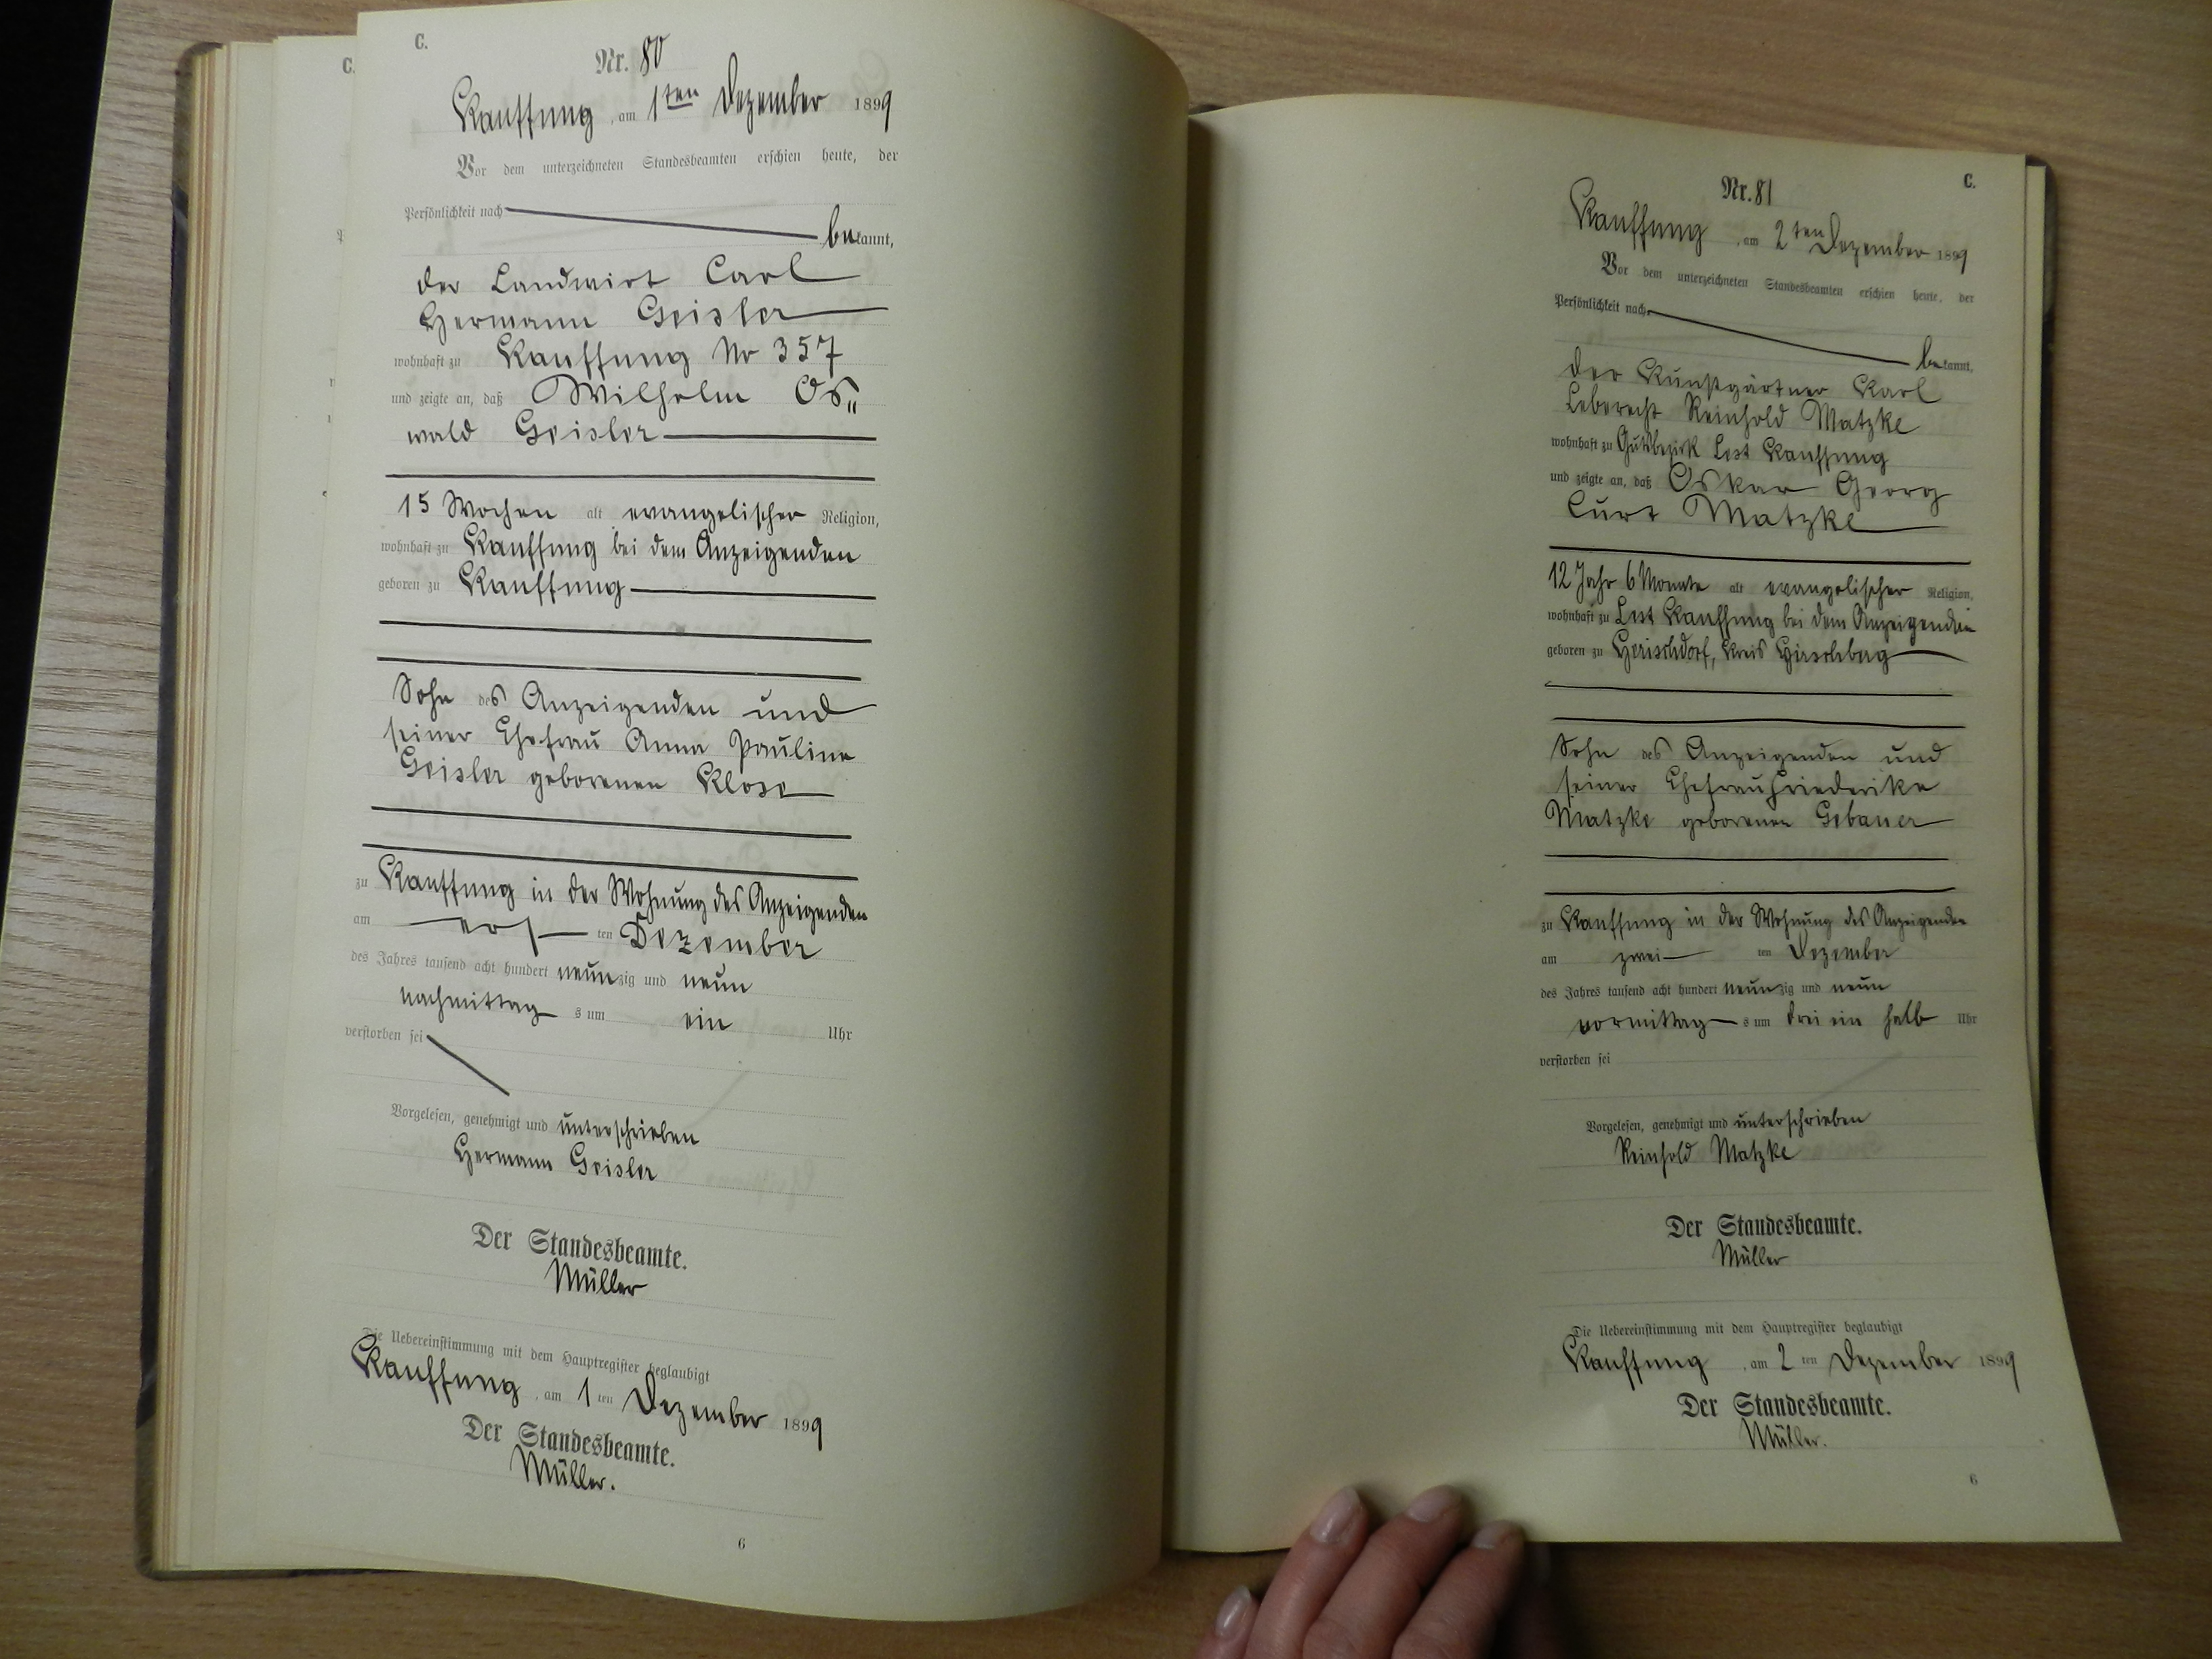 C.
Nr. 80
Kauffung, am 1ten Dezember 1899
Vor dem unterzeichneten Standesbeamten erschien heute, der
Persönlichkeit nach
bekannt,
der Landwirt Carl
Hermann Geisler
wohnhaft zu Kauffung No 357
und zeigte an, daß Wilhelm Os„
wald Geisler
15 Wochen alt evangelischer Religion,
wohnhaft zu Kauffung bei dem Anzeigenden
geboren zu Kauffung
Sohn des Anzeigenden und
seiner Ehefrau Anna Pauline
Geisler geborenen Klose
zu Kauffung in der Wohnung des Anzeigenden
am erst ten Dezember
des Jahres tausend acht hundert neunzig und neun
nachmittags um ein Uhr
verstorben sei
Vorgelesen, genehmigt und unterschrieben
Hermann Geisler
Der Standesbeamte.
Müller
Die Uebereinstimmung mit dem Hauptregister beglaubigt
Kauffung, am 1 ten Dezember 1899
Der Standesbeamte.
Müller.
6
C.
C.
Nr. 81
Kauffung, am 2ten Dezember 1899
Vor dem unterzeichneten Standesbeamten erschien heute, der
Persönlichkeit nach
bekannt,
der Kunstgärtner Karl
Leberecht Reinhold Matzke
wohnhaft zu Gutsbezirk Lest Kauffung
und zeigte an, daß Oskar Georg
Curt Matzke
12 Jahr 6 Monate alt evangelischer Religion,
wohnhaft zu Lest Kauffung bei dem Anzeigenden
geboren zu Herischdorf, Kreis Hirschberg
Sohn des Anzeigenden und
seiner Ehefrau Friederike
Matzke geborenen Gebauer
zu Kauffung in der Wohnung des Anzeigenden
am zwei ten Dezember
des Jahres tausend acht hundert neunzig und neun
vormittags um drei ein halb Uhr
verstorben sei
Vorgelesen, genehmigt und unterschrieben
Reinhold Matzke
Der Standesbeamte.
Müller
Die Uebereinstimmung mit dem Hauptregister beglaubigt
Kauffung, am 2 ten Dezember 1899
Der Standesbeamte.
Müller.
6